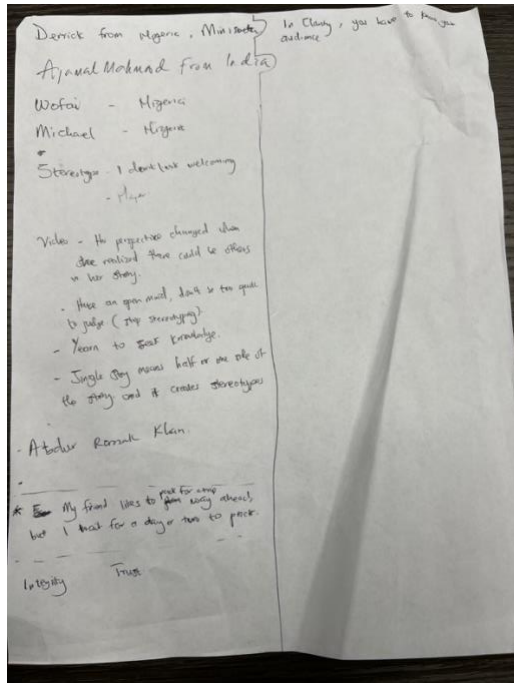 Derrick from Nigeria, Minisota
Ajamal Mohmad From India
Wofai - Nigeria
Michael - Nigeria
*
Stereotype - I don't look welcoming
- Player
Video - Her perspective changed when
she realized there could be others
in her story.
- Have an open mind, don't be too quick
to judge (stop stereotyping)
- Yearn to seek knowledge.
- Single story means half or one side of
the story and it creates stereotypes
- Khan.
* My friend likes to pack for a trip way ahead,
but I wait for a day or two to pack.
Integrity Trust
In , you have to your
audience